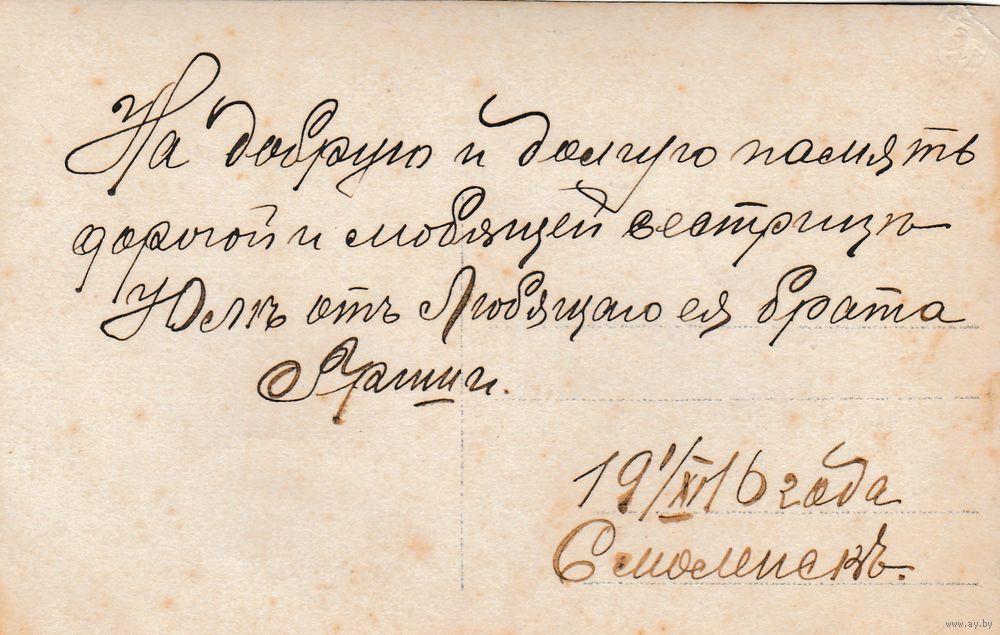 На добрую и долгую память
дорогой и любящей сестрицѣ
Юлѣ отъ Любящаго ея брата
19 1/XI 16 года
Смоленскъ.
www.ay.by